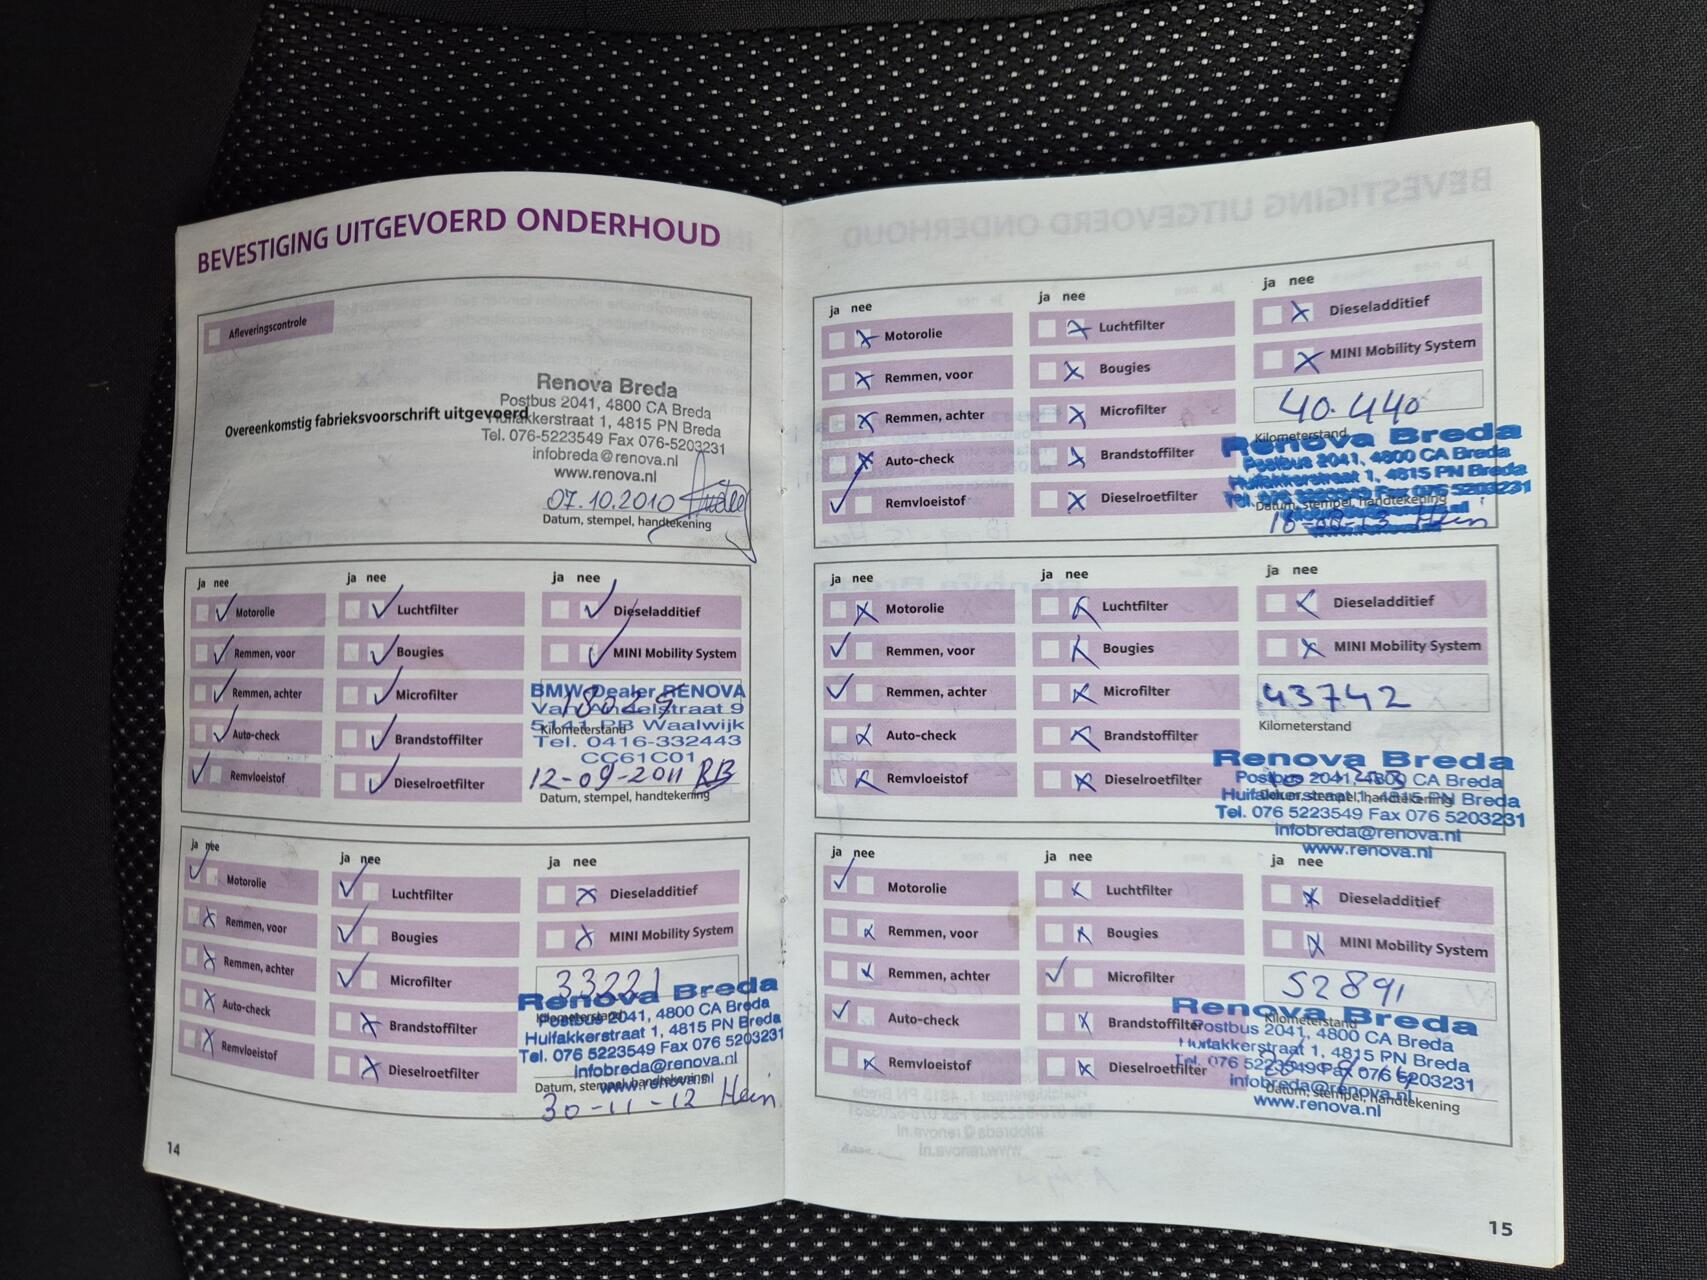 BEVESTIGING UITGEVOERD ONDERHOUD
Afleveringscontrole
Renova Breda
Postbus 2041, 4800 CA Breda
Overeenkomstig fabrieksvoorschrift uitgevoerd
Huifakkerstraat 1, 4815 PN Breda
Tel. 076-5223549 Fax 076-5203231
infobreda@renova.nl
www.renova.nl
07.10.2010
Datum, stempel, handtekening
ja nee ja nee ja nee
Motorolie Luchtfilter Dieseladditief
Remmen, voor Bougies MINI Mobility System
Remmen, achter Microfilter
BMW Dealer RENOVA
Van Andelstraat 9
5141 PB Waalwijk
Auto-check Brandstoffilter
Kilometerstand
Tel. 0416-332443
CC61C01
Remvloeistof Dieselroetfilter
12-09-2011 RB
Datum, stempel, handtekening
ja nee ja nee ja nee
Motorolie Luchtfilter Dieseladditief
Remmen, voor Bougies MINI Mobility System
Remmen, achter Microfilter
33221
Renova Breda
Kilometerstand
Postbus 2041, 4800 CA Breda
Auto-check Brandstoffilter
Huifakkerstraat 1, 4815 PN Breda
Tel. 076 5223549 Fax 076 5203231
Remvloeistof Dieselroetfilter
infobreda@renova.nl
Datum, stempel, handtekening
www.renova.nl
30-11-12 Hein
14
ja nee ja nee ja nee
Motorolie Luchtfilter Dieseladditief
Remmen, voor Bougies MINI Mobility System
Remmen, achter Microfilter
40.440
Kilometerstand
Renova Breda
Auto-check Brandstoffilter
Postbus 2041, 4800 CA Breda
Huifakkerstraat 1, 4815 PN Breda
Remvloeistof Dieselroetfilter
Tel. 076 5223549 Fax 076 5203231
Datum, stempel, handtekening
Hein
www.renova.nl
ja nee ja nee ja nee
Motorolie Luchtfilter Dieseladditief
Remmen, voor Bougies MINI Mobility System
Remmen, achter Microfilter
43742
Kilometerstand
Auto-check Brandstoffilter
Renova Breda
Remvloeistof Dieselroetfilter
Postbus 2041, 4800 CA Breda
Datum, stempel, handtekening
Huifakkerstraat 1, 4815 PN Breda
Tel. 076 5223549 Fax 076 5203231
infobreda@renova.nl
www.renova.nl
ja nee ja nee ja nee
Motorolie Luchtfilter Dieseladditief
Remmen, voor Bougies MINI Mobility System
Remmen, achter Microfilter
52891
Renova Breda
Kilometerstand
Auto-check Brandstoffilter
Postbus 2041, 4800 CA Breda
Huifakkerstraat 1, 4815 PN Breda
Remvloeistof Dieselroetfilter
Tel. 076 5223549 Fax 076 5203231
infobreda@renova.nl
Datum, stempel, handtekening
www.renova.nl
15